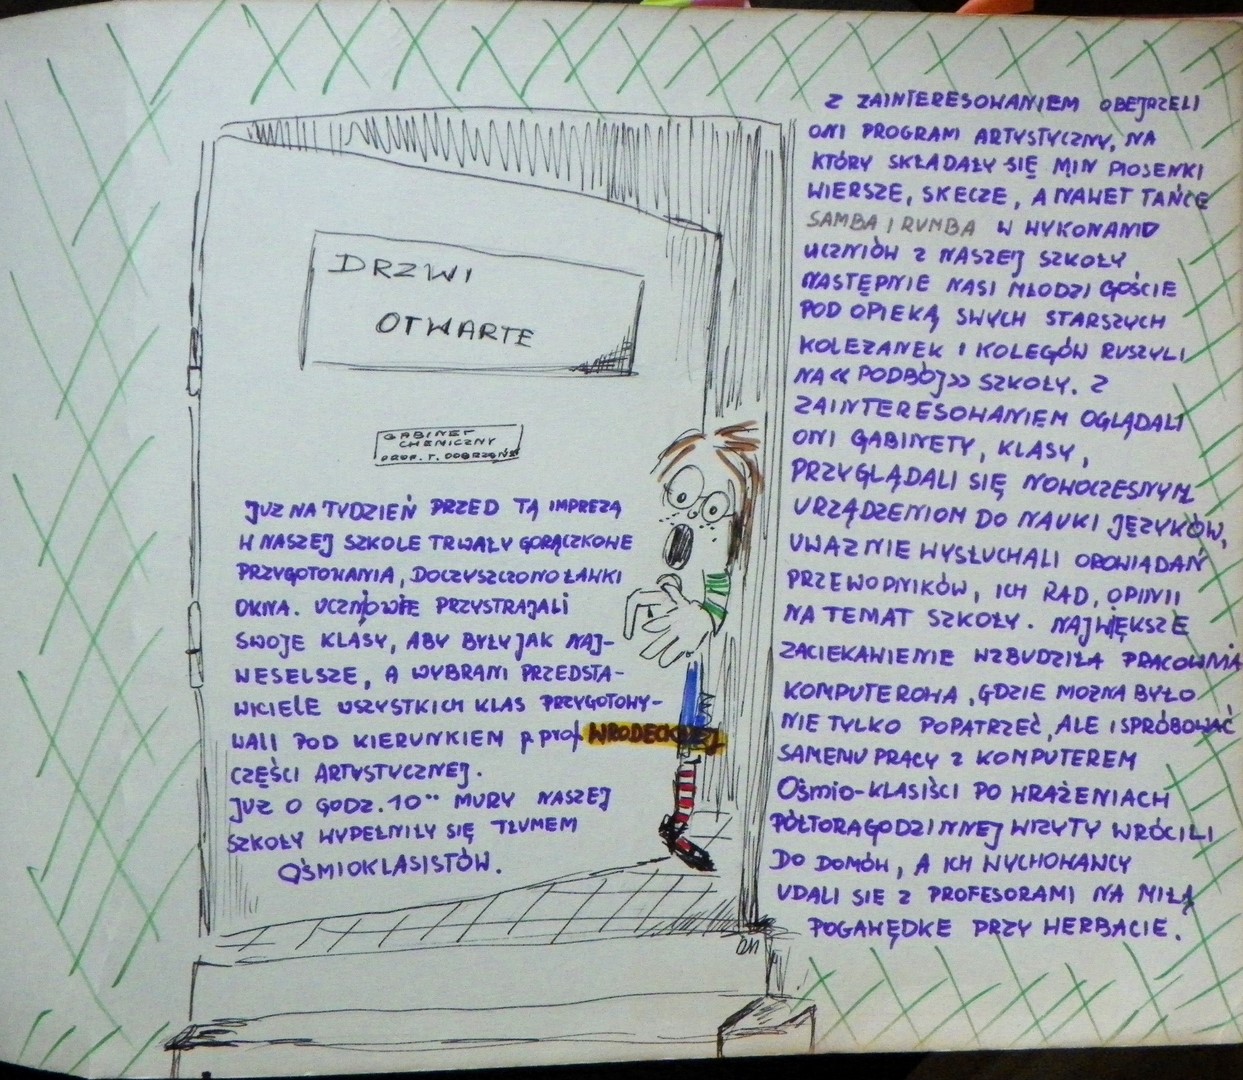 DRZWI
OTWARTE
GABINET
CHEMICZNY
PROF. T.
JUŻ NA TYDZIEŃ PRZED TĄ IMPREZĄ
W NASZEJ SZKOLE TRWAŁY GORĄCZKOWE
PRZYGOTOWANIA, DOCZYSZCZONO ŁAWKI
OKNA. UCZNIOWIE PRZYSTRAJALI
SWOJE KLASY, ABY BYŁY JAK NAJ-
WESELSZE, A WYBRANI PRZEDSTA-
WICIELE WSZYSTKICH KLAS PRZYGOTOWY-
WALI POD KIERUNKIEM p. prof WRODECKIEJ
CZĘŚCI ARTYSTYCZNEJ.
JUŻ O GODZ. 10°° MURY NASZEJ
SZKOŁY WYPEŁNIŁY SIĘ TŁUMEM
OŚMIOKLASISTÓW.
Z ZAINTERESOWANIEM OBEJRZELI
ONI PROGRAM ARTYSTYCZNY, NA
KTÓRY SKŁADAŁY SIĘ MIN PIOSENKI
WIERSZE, SKECZE, A NAWET TAŃCE
SAMBA I RUMBA W WYKONANIU
UCZNIÓW Z NASZEJ SZKOŁY
NASTĘPNIE NASI MŁODZI GOŚCIE
POD OPIEKĄ SWYCH STARSZYCH
KOLEŻANEK I KOLEGÓW RUSZYLI
NA «PODBÓJ» SZKOŁY. Z
ZAINTERESOWANIEM OGLĄDALI
ONI GABINETY, KLASY,
PRZYGLĄDALI SIĘ NOWOCZESNYM
URZĄDZENIOM DO NAUKI JĘZYKÓW,
UWAŻNIE WYSŁUCHALI OPOWIADAŃ
PRZEWODNIKÓW, ICH RAD, OPINII
NA TEMAT SZKOŁY. NAJWIĘKSZE
ZACIEKAWIENIE WZBUDZIŁA PRACOWNIA
KOMPUTEROWA, GDZIE MOŻNA BYŁO
NIE TYLKO POPATRZEĆ, ALE I SPRÓBOWAĆ
SAMEMU PRACY Z KOMPUTEREM
OŚmio-KLASIŚCI PO WRAŻENIACH
PÓŁTORAGODZINNEJ WIZYTY WRÓCILI
DO DOMÓW, A ICH WYCHOWAWCY
UDALI SIĘ Z PROFESORAMI NA MIŁĄ
POGAWĘDKE PRZY HERBACIE.